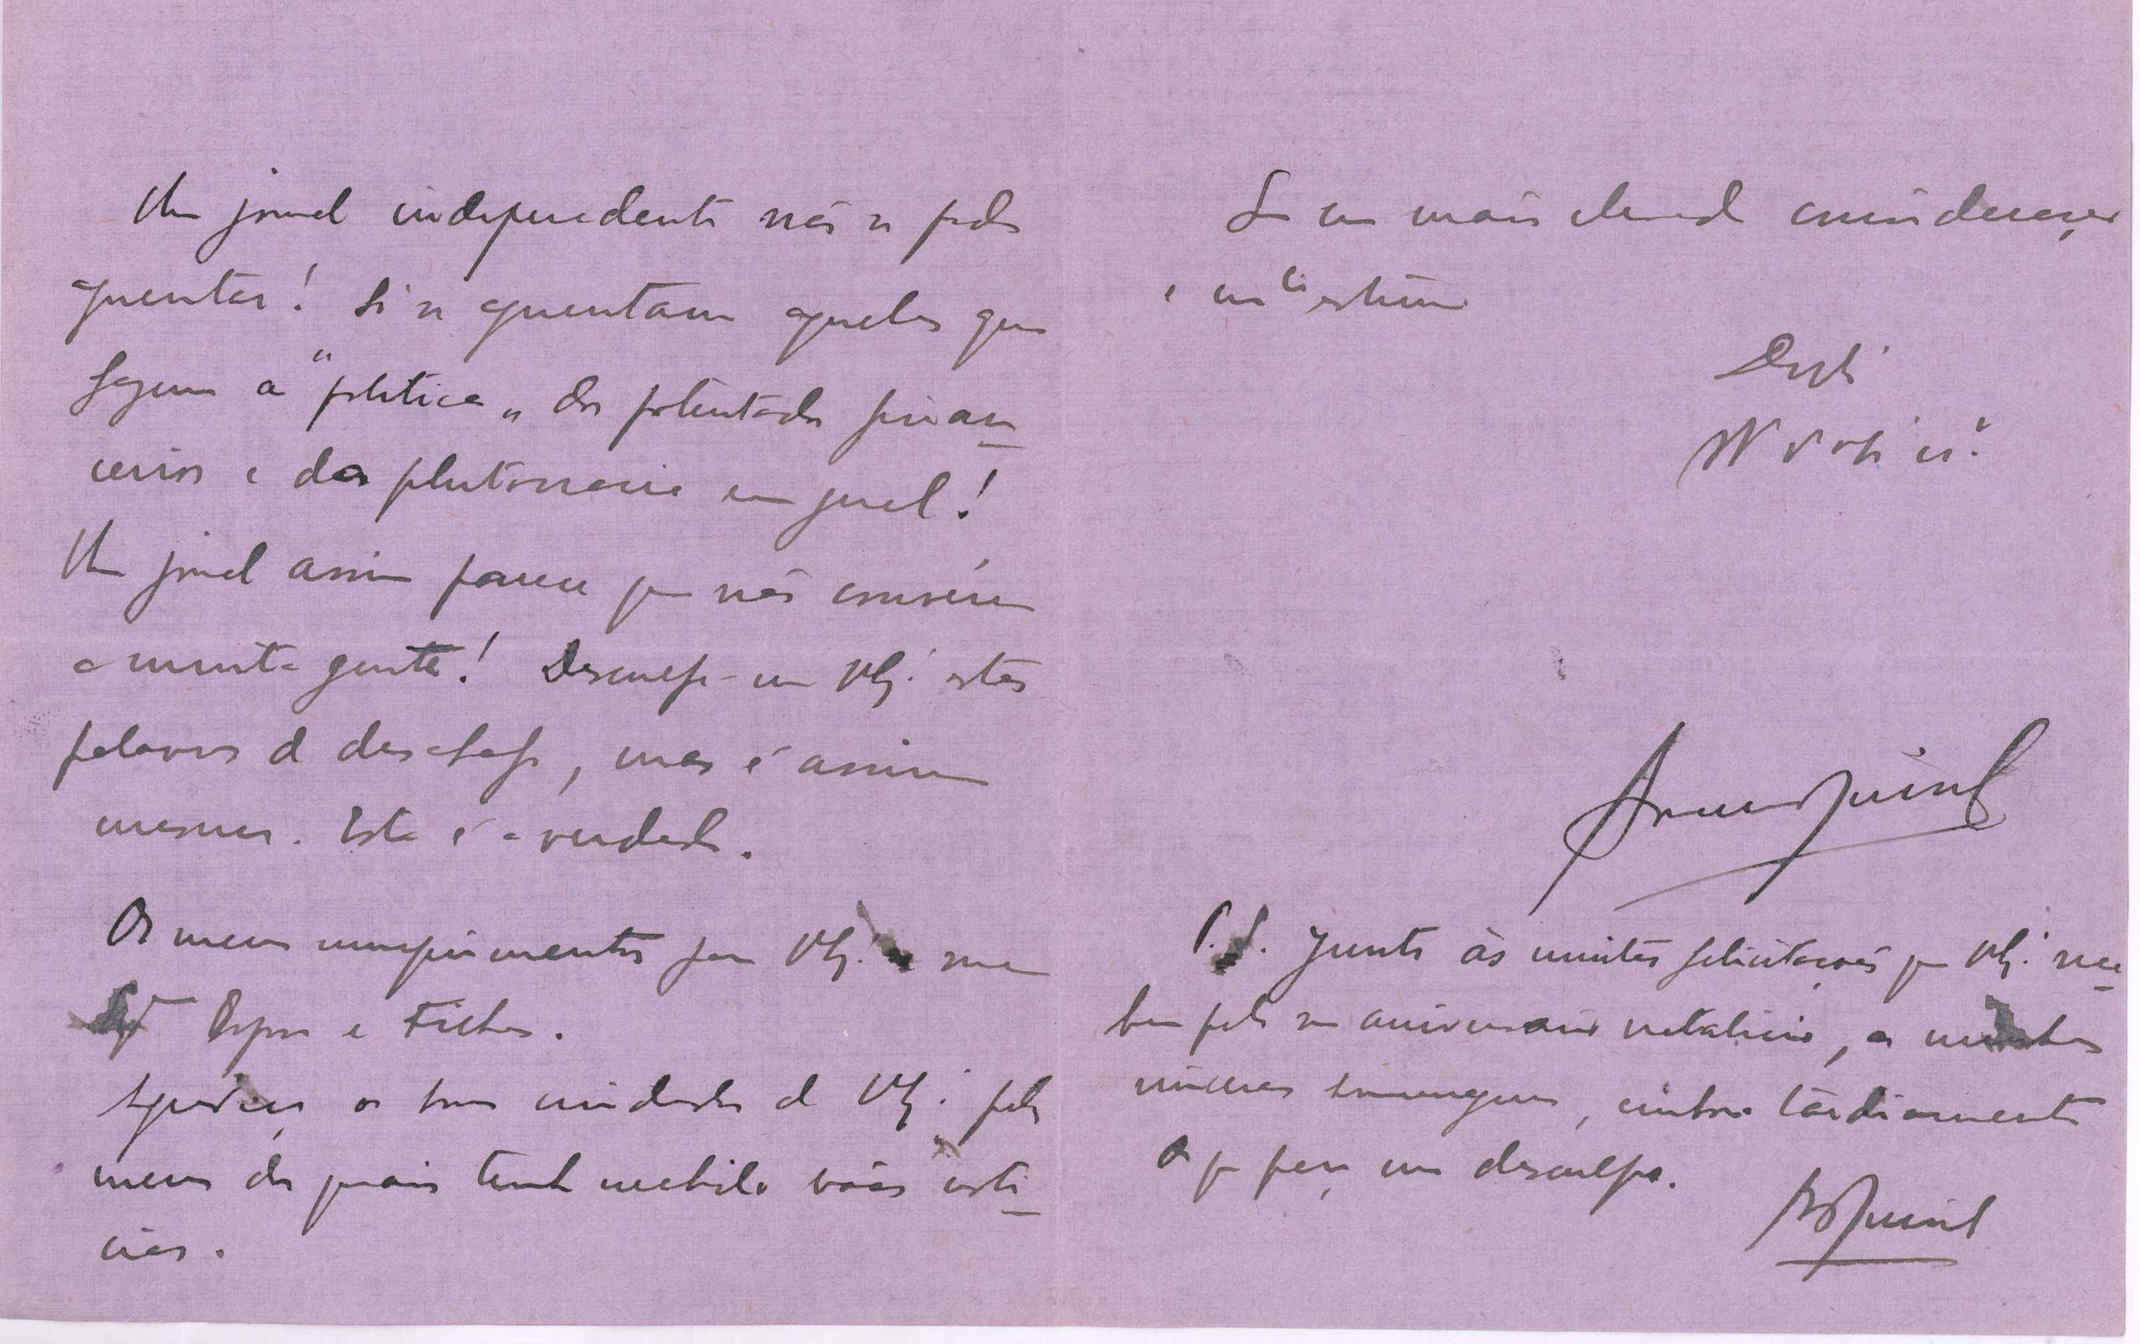 Um jornal independente não se pode
aguentar! Só se aguentam aqueles que
fazem a "politica" dos potentados finan-
ceiros e da plutocracia em geral!
Um jornal assim parece que não convém
a muita gente! Desculpe-me V. Ex.ª estas
palavras de desabafo, mas é assim
mesmo. Esta é a verdade.
Os meus cumprimentos para V. Ex.ª e sua
Esposa e Filhos.
Agradeço os bons cuidados de V. Ex.ª pelos
meus dos quais tenho recebido bôas noti-
cias.
Sou com mais elevada consideração
e estima
De V. Ex.ª
P.S. Junto ás muitas felicitações que V. Ex.ª rece-
beu pelo seu aniversario natalicio, as minhas
sinceras homenagens, embora tardiamente
do que peço me desculpe.